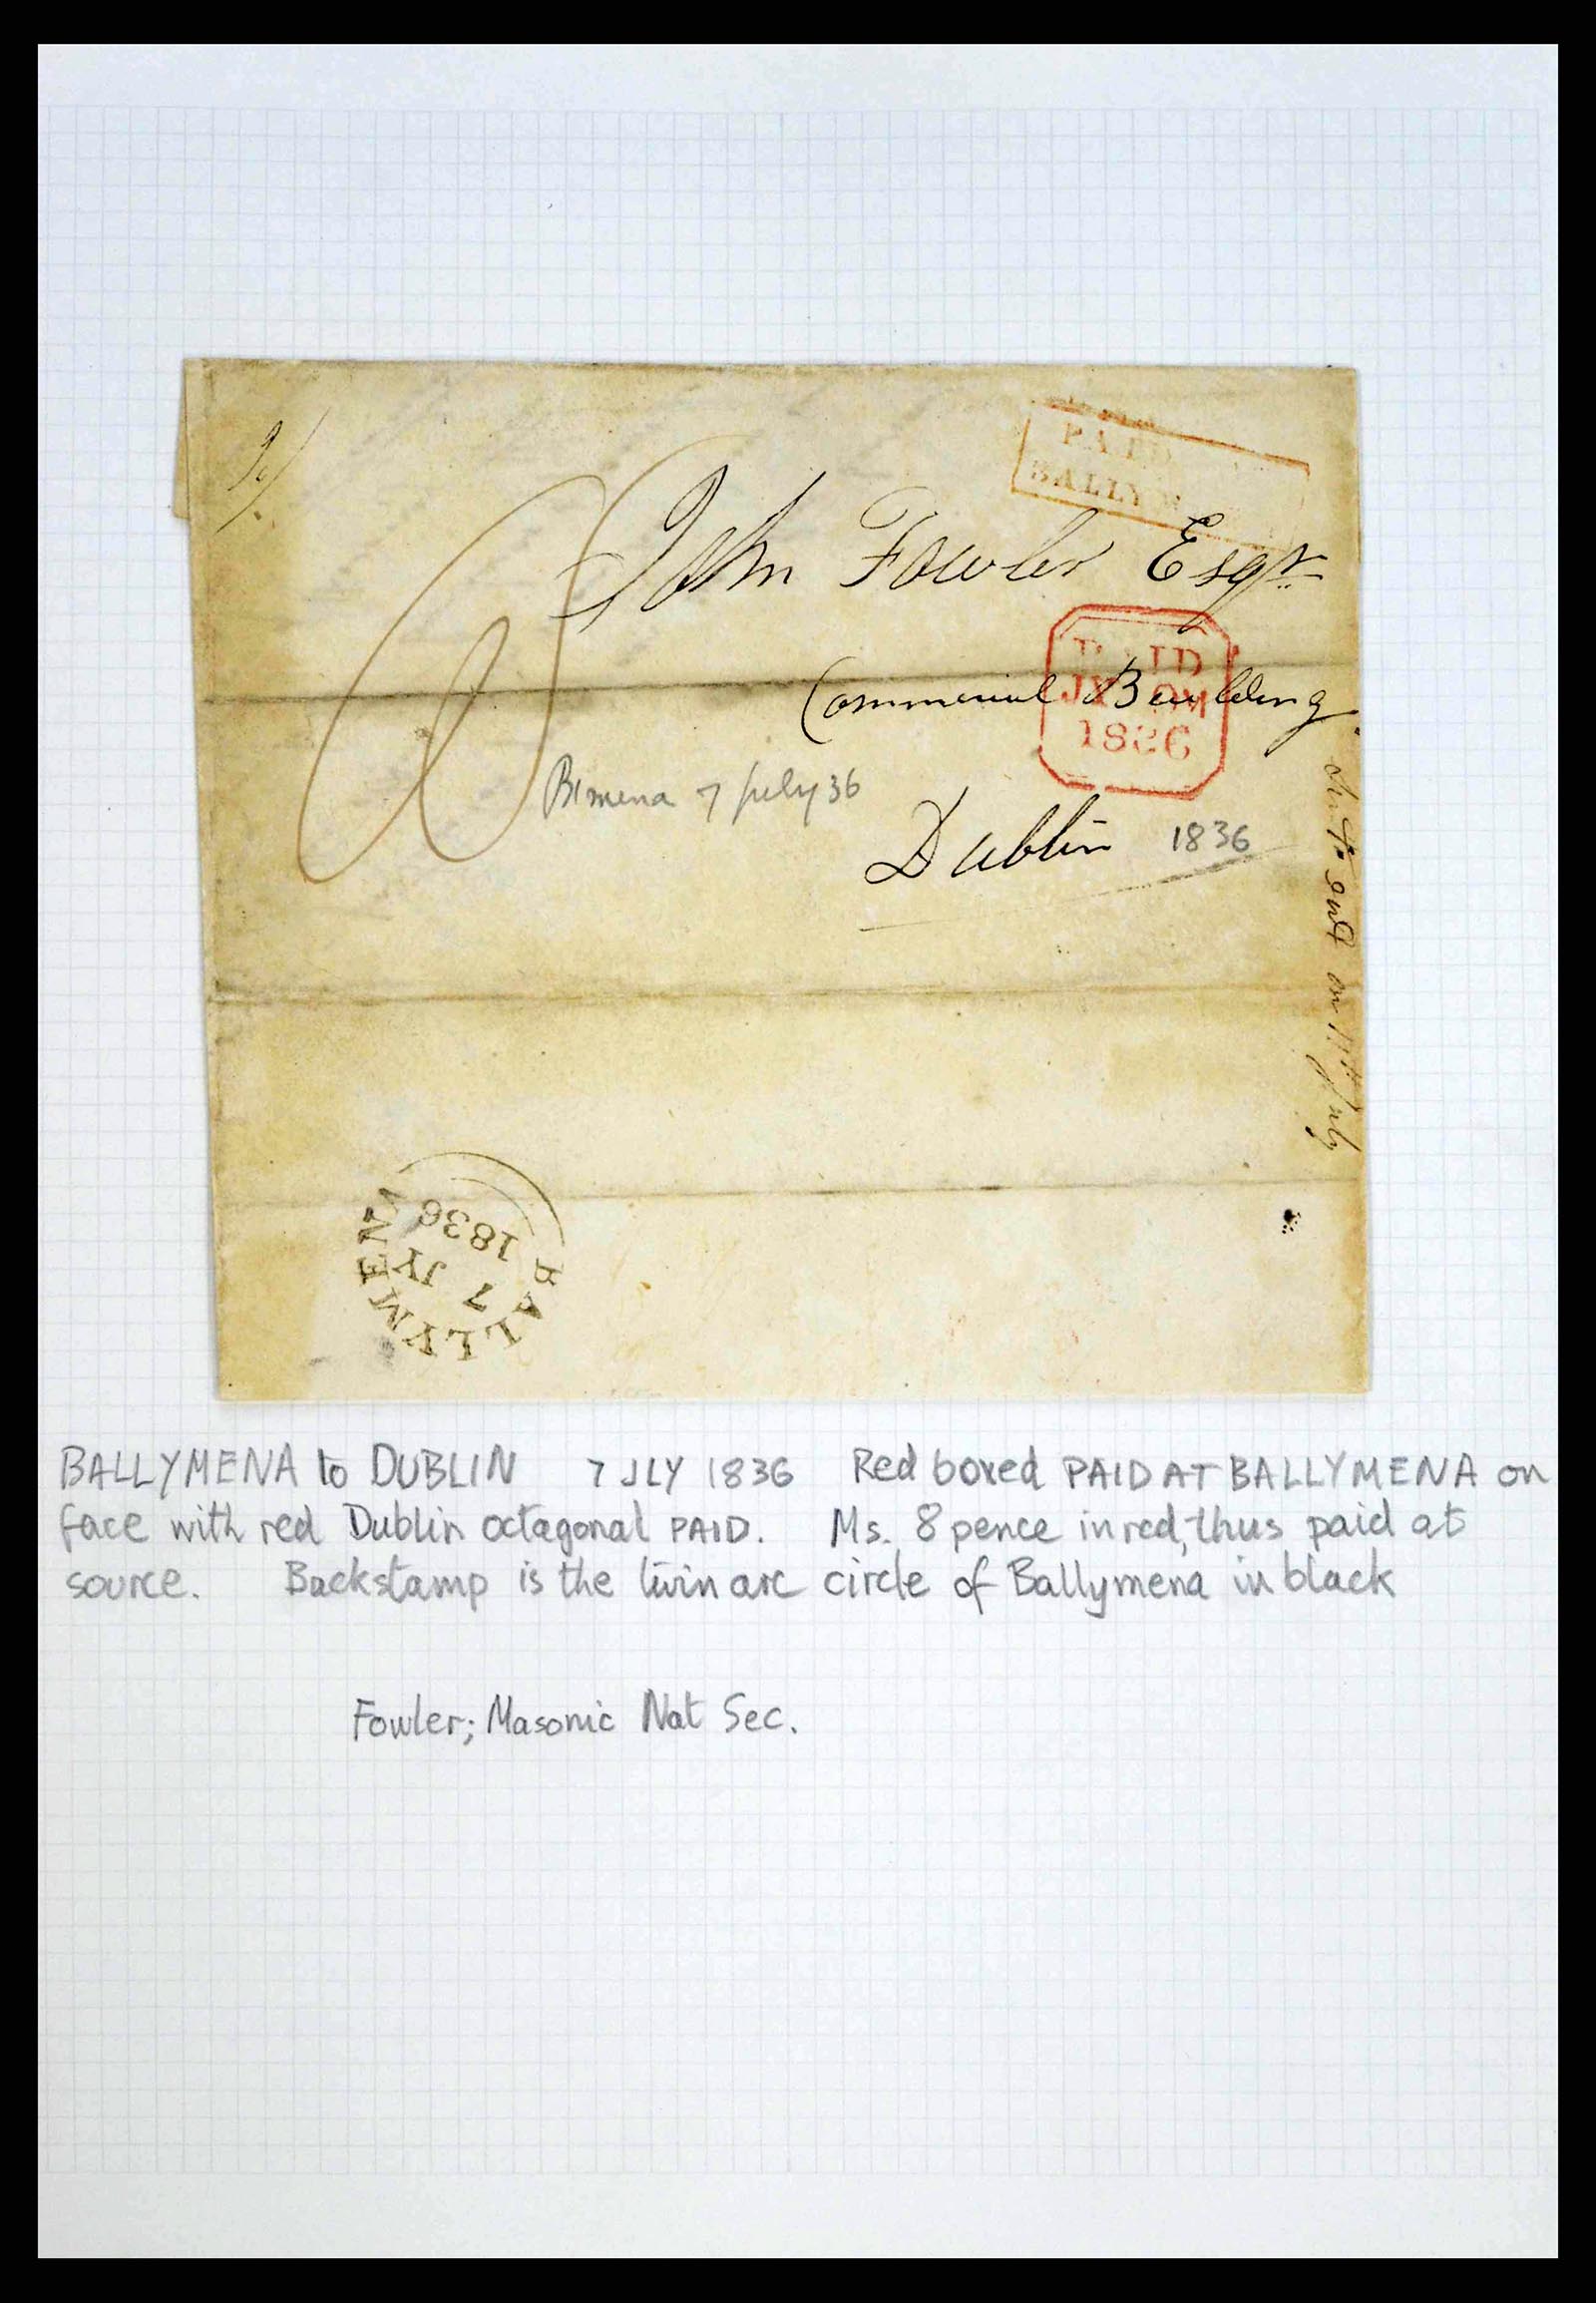 PAID
BALLYM
John Fowler Esqr
PAID
JY
1836
Commercial Building
Bimena 7 july 36
Dublin 1836
on July
BALLYMENA
7
JY
1836
BALLYMENA to DUBLIN 7 JLY 1836 Red boxed PAID AT BALLYMENA on
face with red Dublin octagonal PAID. Ms. 8 pence in red, thus paid at
source. Backstamp is the twin arc circle of Ballymena in black
Fowler; Masonic Nat Sec.